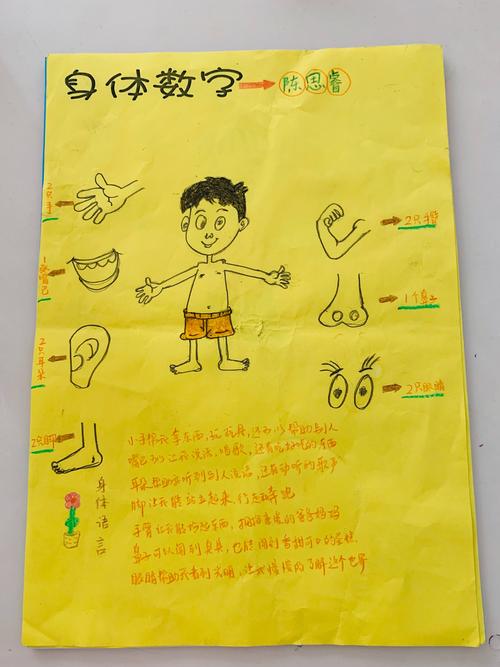 身体数字 → 陈思睿
2只手
1张嘴巴
2只耳朵
2只脚
2只手臂
1个鼻子
2只眼睛
身体语言
小手帮我拿东西,玩玩具,还可以帮助别人
嘴巴可以让我说话,唱歌,还有吃好吃的东西
耳朵帮助我听到别人说话,还有动听的歌声
脚让我能站立起来,行走奔跑
手臂让我能抬起东西,拥抱喜爱的爸爸妈妈
鼻子可以闻到臭臭,也能闻到香甜可口的蛋糕
眼睛帮助我看到光明,让我慢慢的了解这个世界